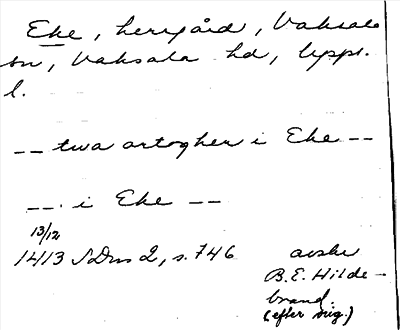 Eke, herrgård, Vaksala
sn, Vaksala hd, Upps.
l.
-- twa ortogher i Eke --
--- i Eke --
13/12
1413 SDns 2, s. 746 avskr
B.E. Hilde-
brand.
(efter orig.)